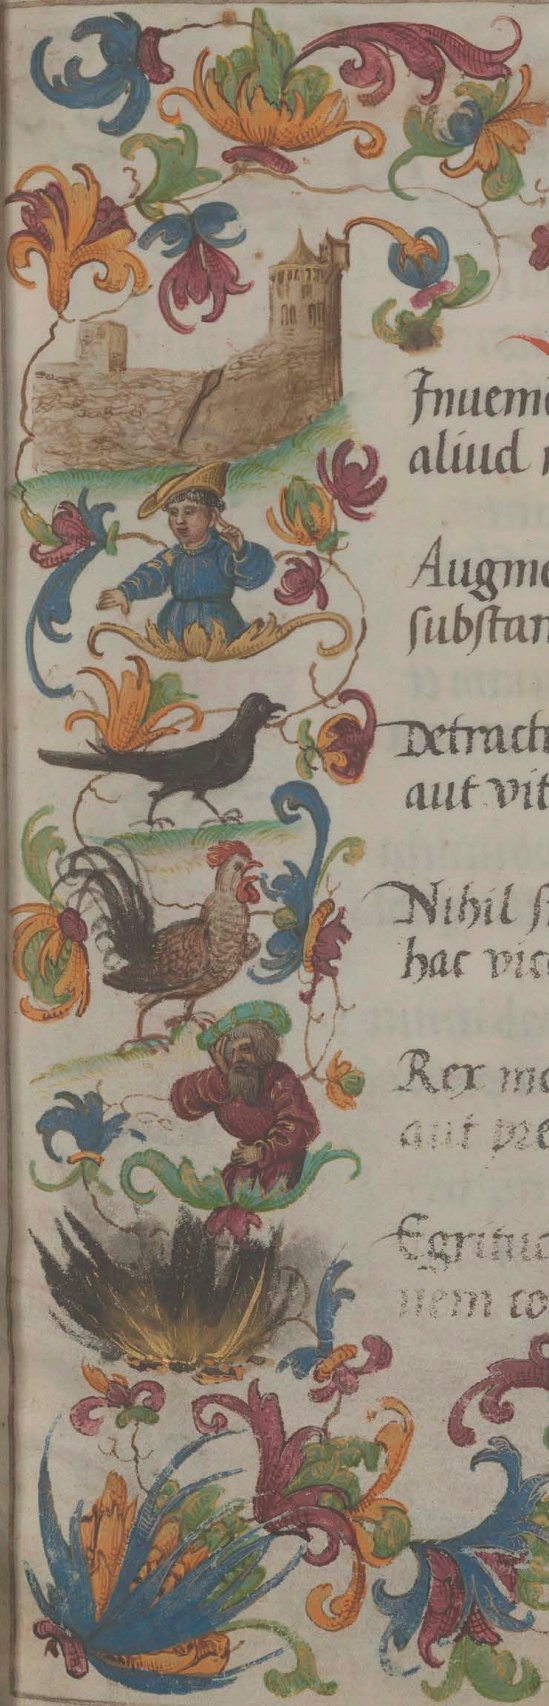 Inueni
aliud
Augme
substan
Detract
aut vit
Nihil si
hac vic
Rex mo
aut pre
Egritu
nem co